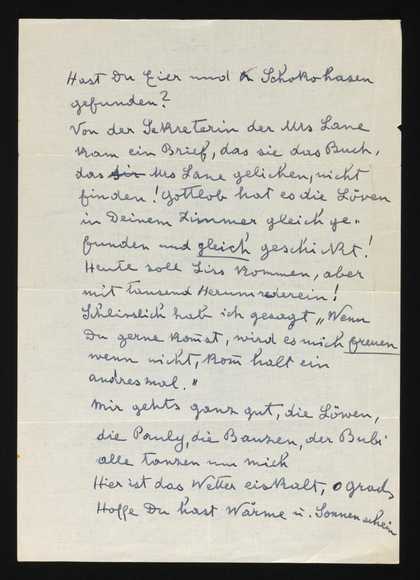 Hast Du Eier und Schokohasen
gefunden?
Von der Sekreterin der Mrs Lane
kam ein Brief, das sie das Buch,
das Mrs Lane geliehen, nicht
finden! Gottlob hat es die Löven
in Deinem Zimmer gleich ge-
funden und gleich geschickt!
Heute soll Lirs kommen, aber
mit tausend Herumrederein!
Schleisslich hab ich gesagt „Wenn
Du gerne komst, wird es mich freuen
wenn nicht, kom halt ein
andres mal."
Mir gehts ganz gut, die Löwen,
die Pauly, die Banzen, der Bubi
alle tanzen um mich
Hier ist das Wetter eiskalt, 0 grads
Hoffe Du hast Wärme u. Sonnenschein